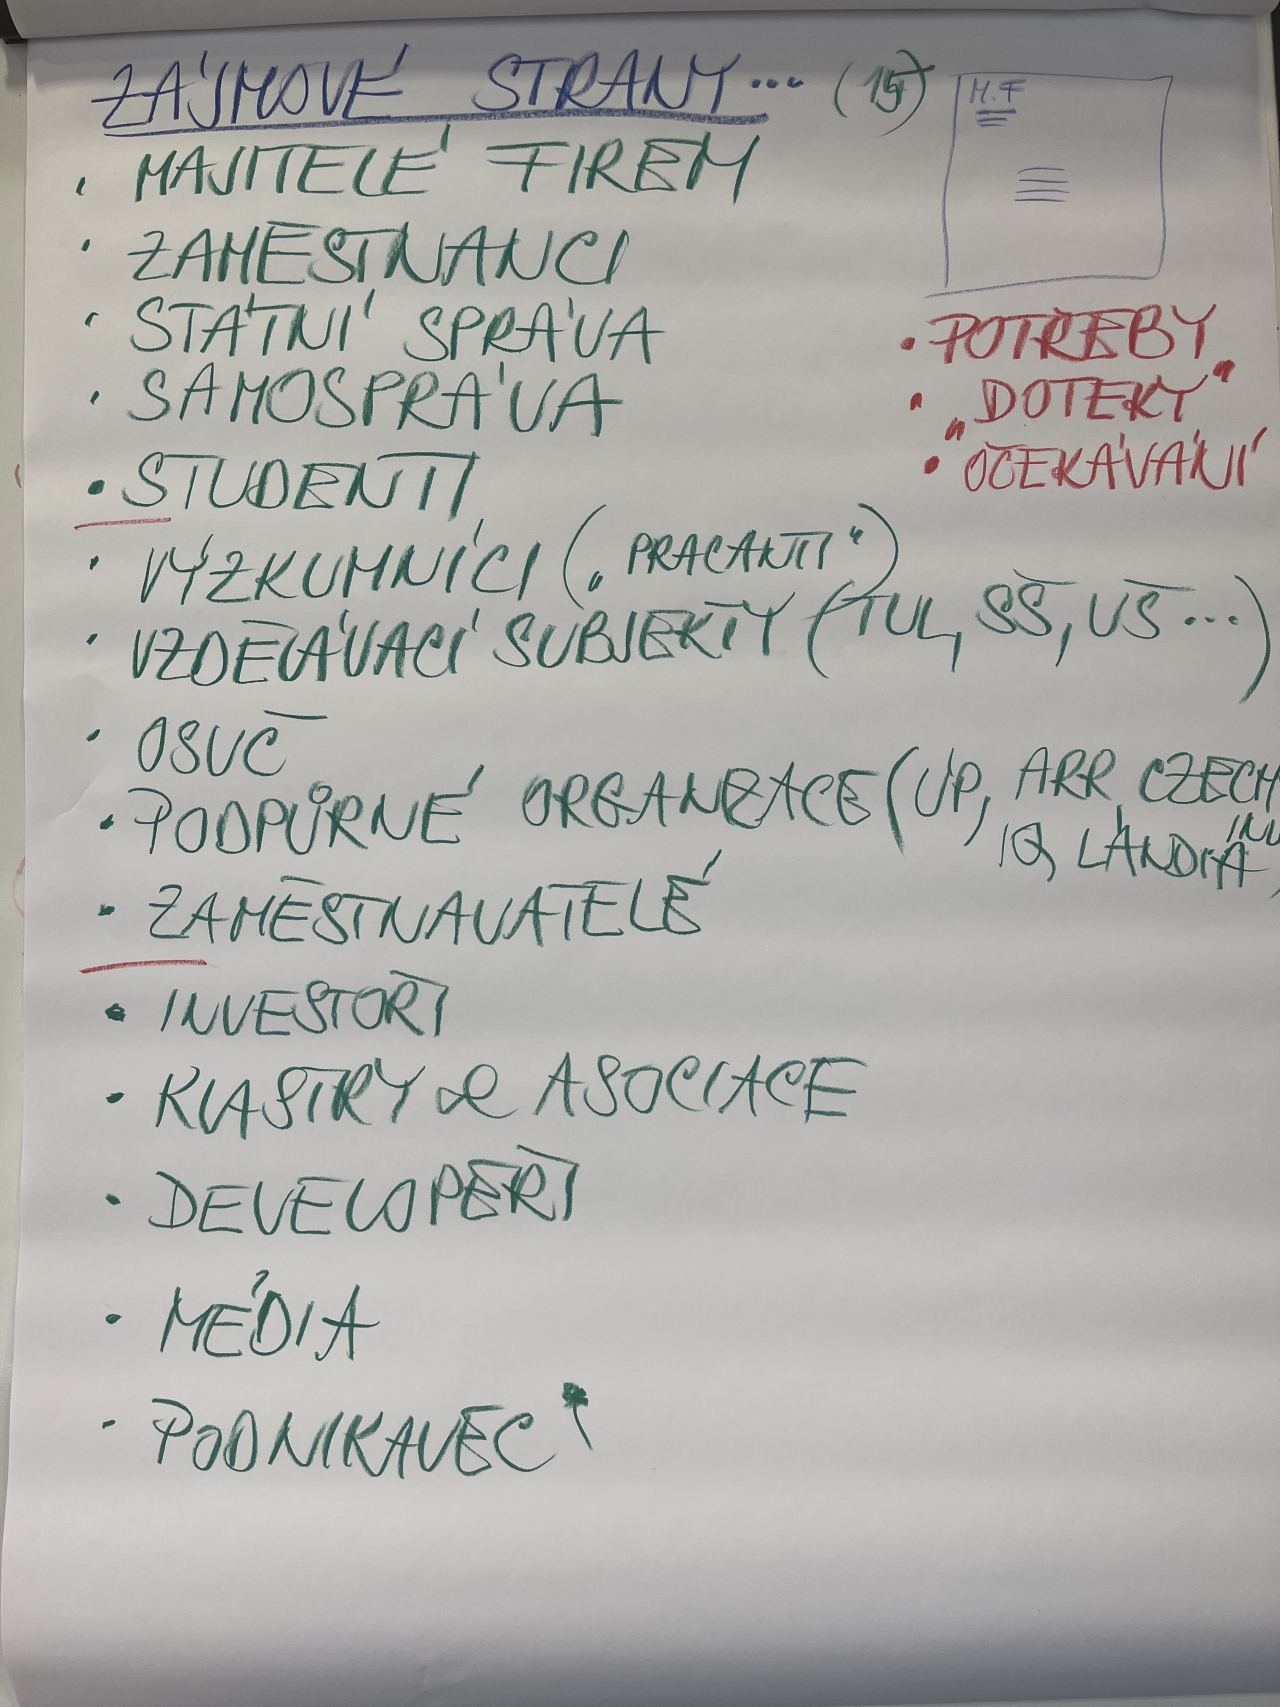 ZÁJMOVÉ STRANY... (15)
M.F
• MAJITELÉ FIREM
• ZAMĚSTNANCI
• STÁTNÍ SPRÁVA
• SAMOSPRÁVA
• POTŘEBY
• „DOTEKY“
• OČEKÁVÁNÍ
• STUDENTI
• VÝZKUMNÍCI („PRACANTI“)
• VZDĚLÁVACÍ SUBJEKTY (TUL, SŠ, VŠ...)
• OSVČ
• PODPŮRNÉ ORGANIZACE (ÚP, ARR, CZECH
INV
IQ LANDIA,
• ZAMĚSTNAVATELÉ
• INVESTOŘI
• KLASTRY & ASOCIACE
• DEVELOPEŘI
• MÉDIA
• PODNIKAVEC